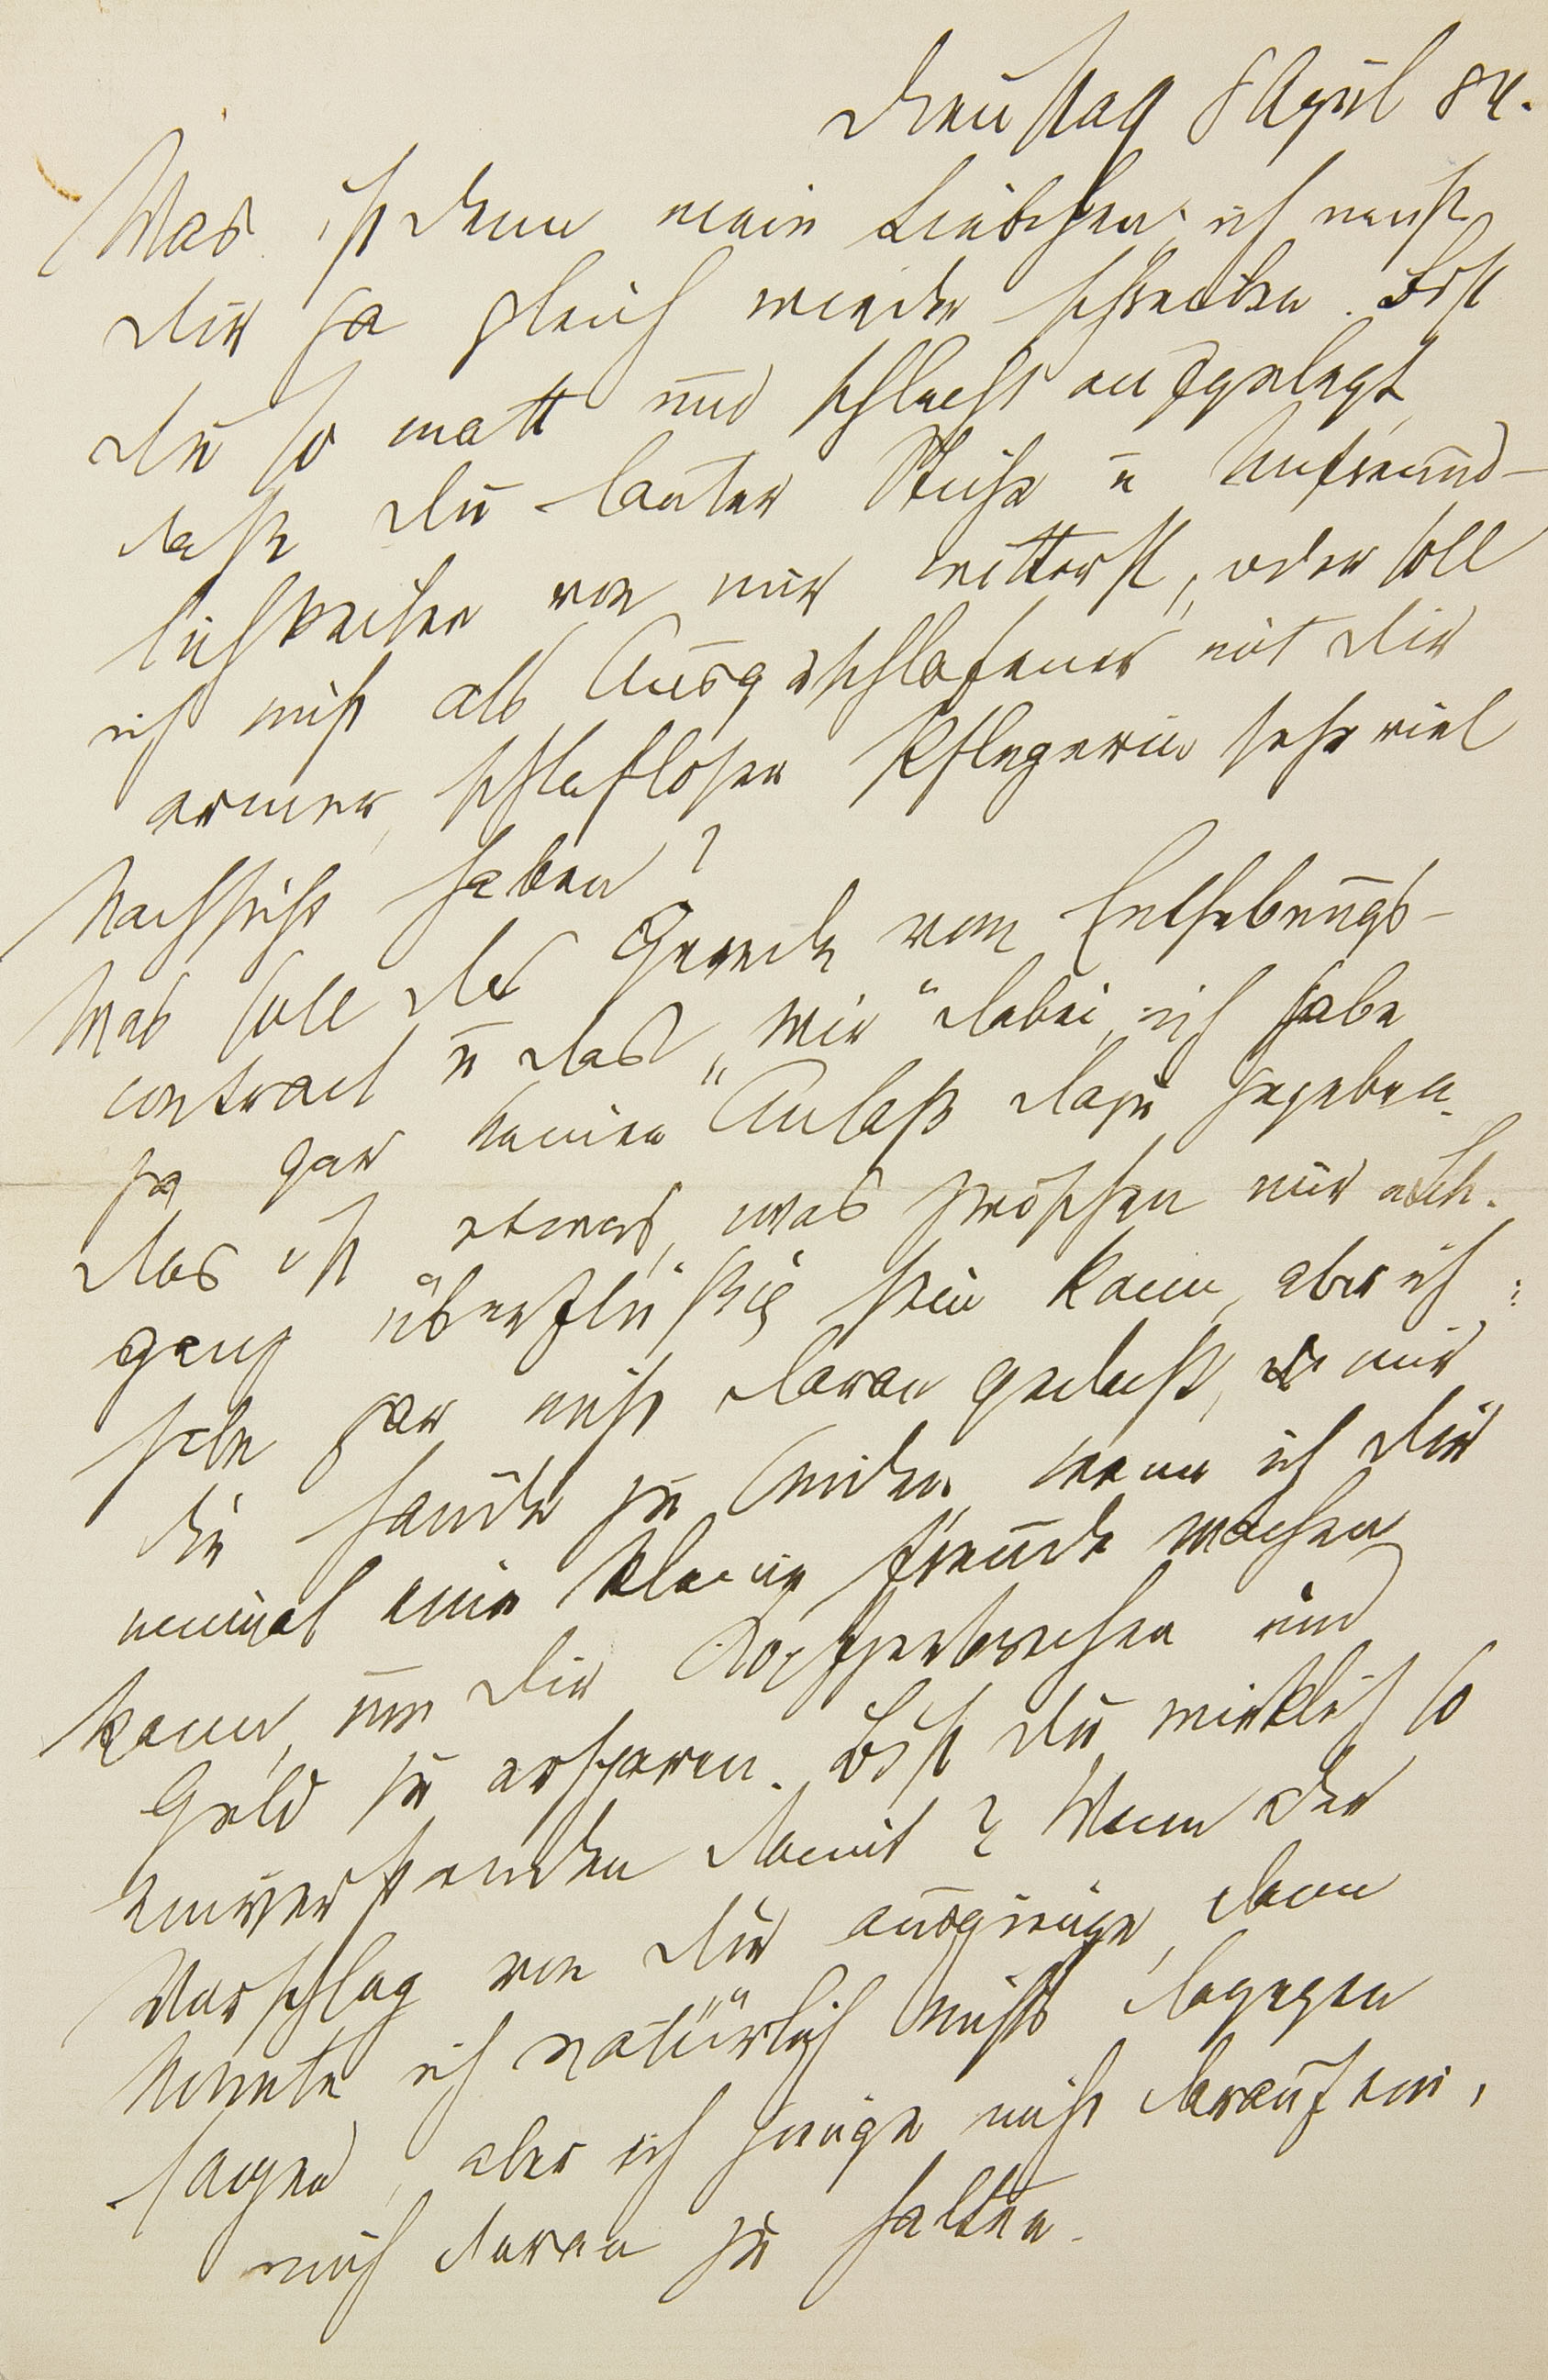 Dienstag 8 April 84.
Was ist denn mein Liebchen, ich muß
dir ja gleich wieder schreiben. Bist
du so matt und schlecht aufgelegt,
daß du lauter Stiche u Unfreund-
lichkeiten von mir witterst, oder soll
ich nicht als Ausgeschlafener mit dir
armer, schlafloser Pflegerin sehr viel
Nachsicht haben?
Was soll das Gerede vom Enthebungs-
contract u das „Wir" dabei, ich habe
ja gar keinen Anlaß dazu gegeben.
Das ist etwas, was zwischen uns
ganz überflüßig sein kann, aber ich
habe gar nicht daran gedacht, mir
die Hände zu binden, wenn ich dir
einmal eine kleine Freude machen
kann, um dir Kopfzerbrechen und
Geld zu ersparen. Bist du wirklich so
einverstanden damit? Wenn der
Vorschlag von dir ausginge, dann
könnte ich natürlich nichts dagegen
sagen, aber ich ginge nicht darauf ein,
mich daran zu halten.